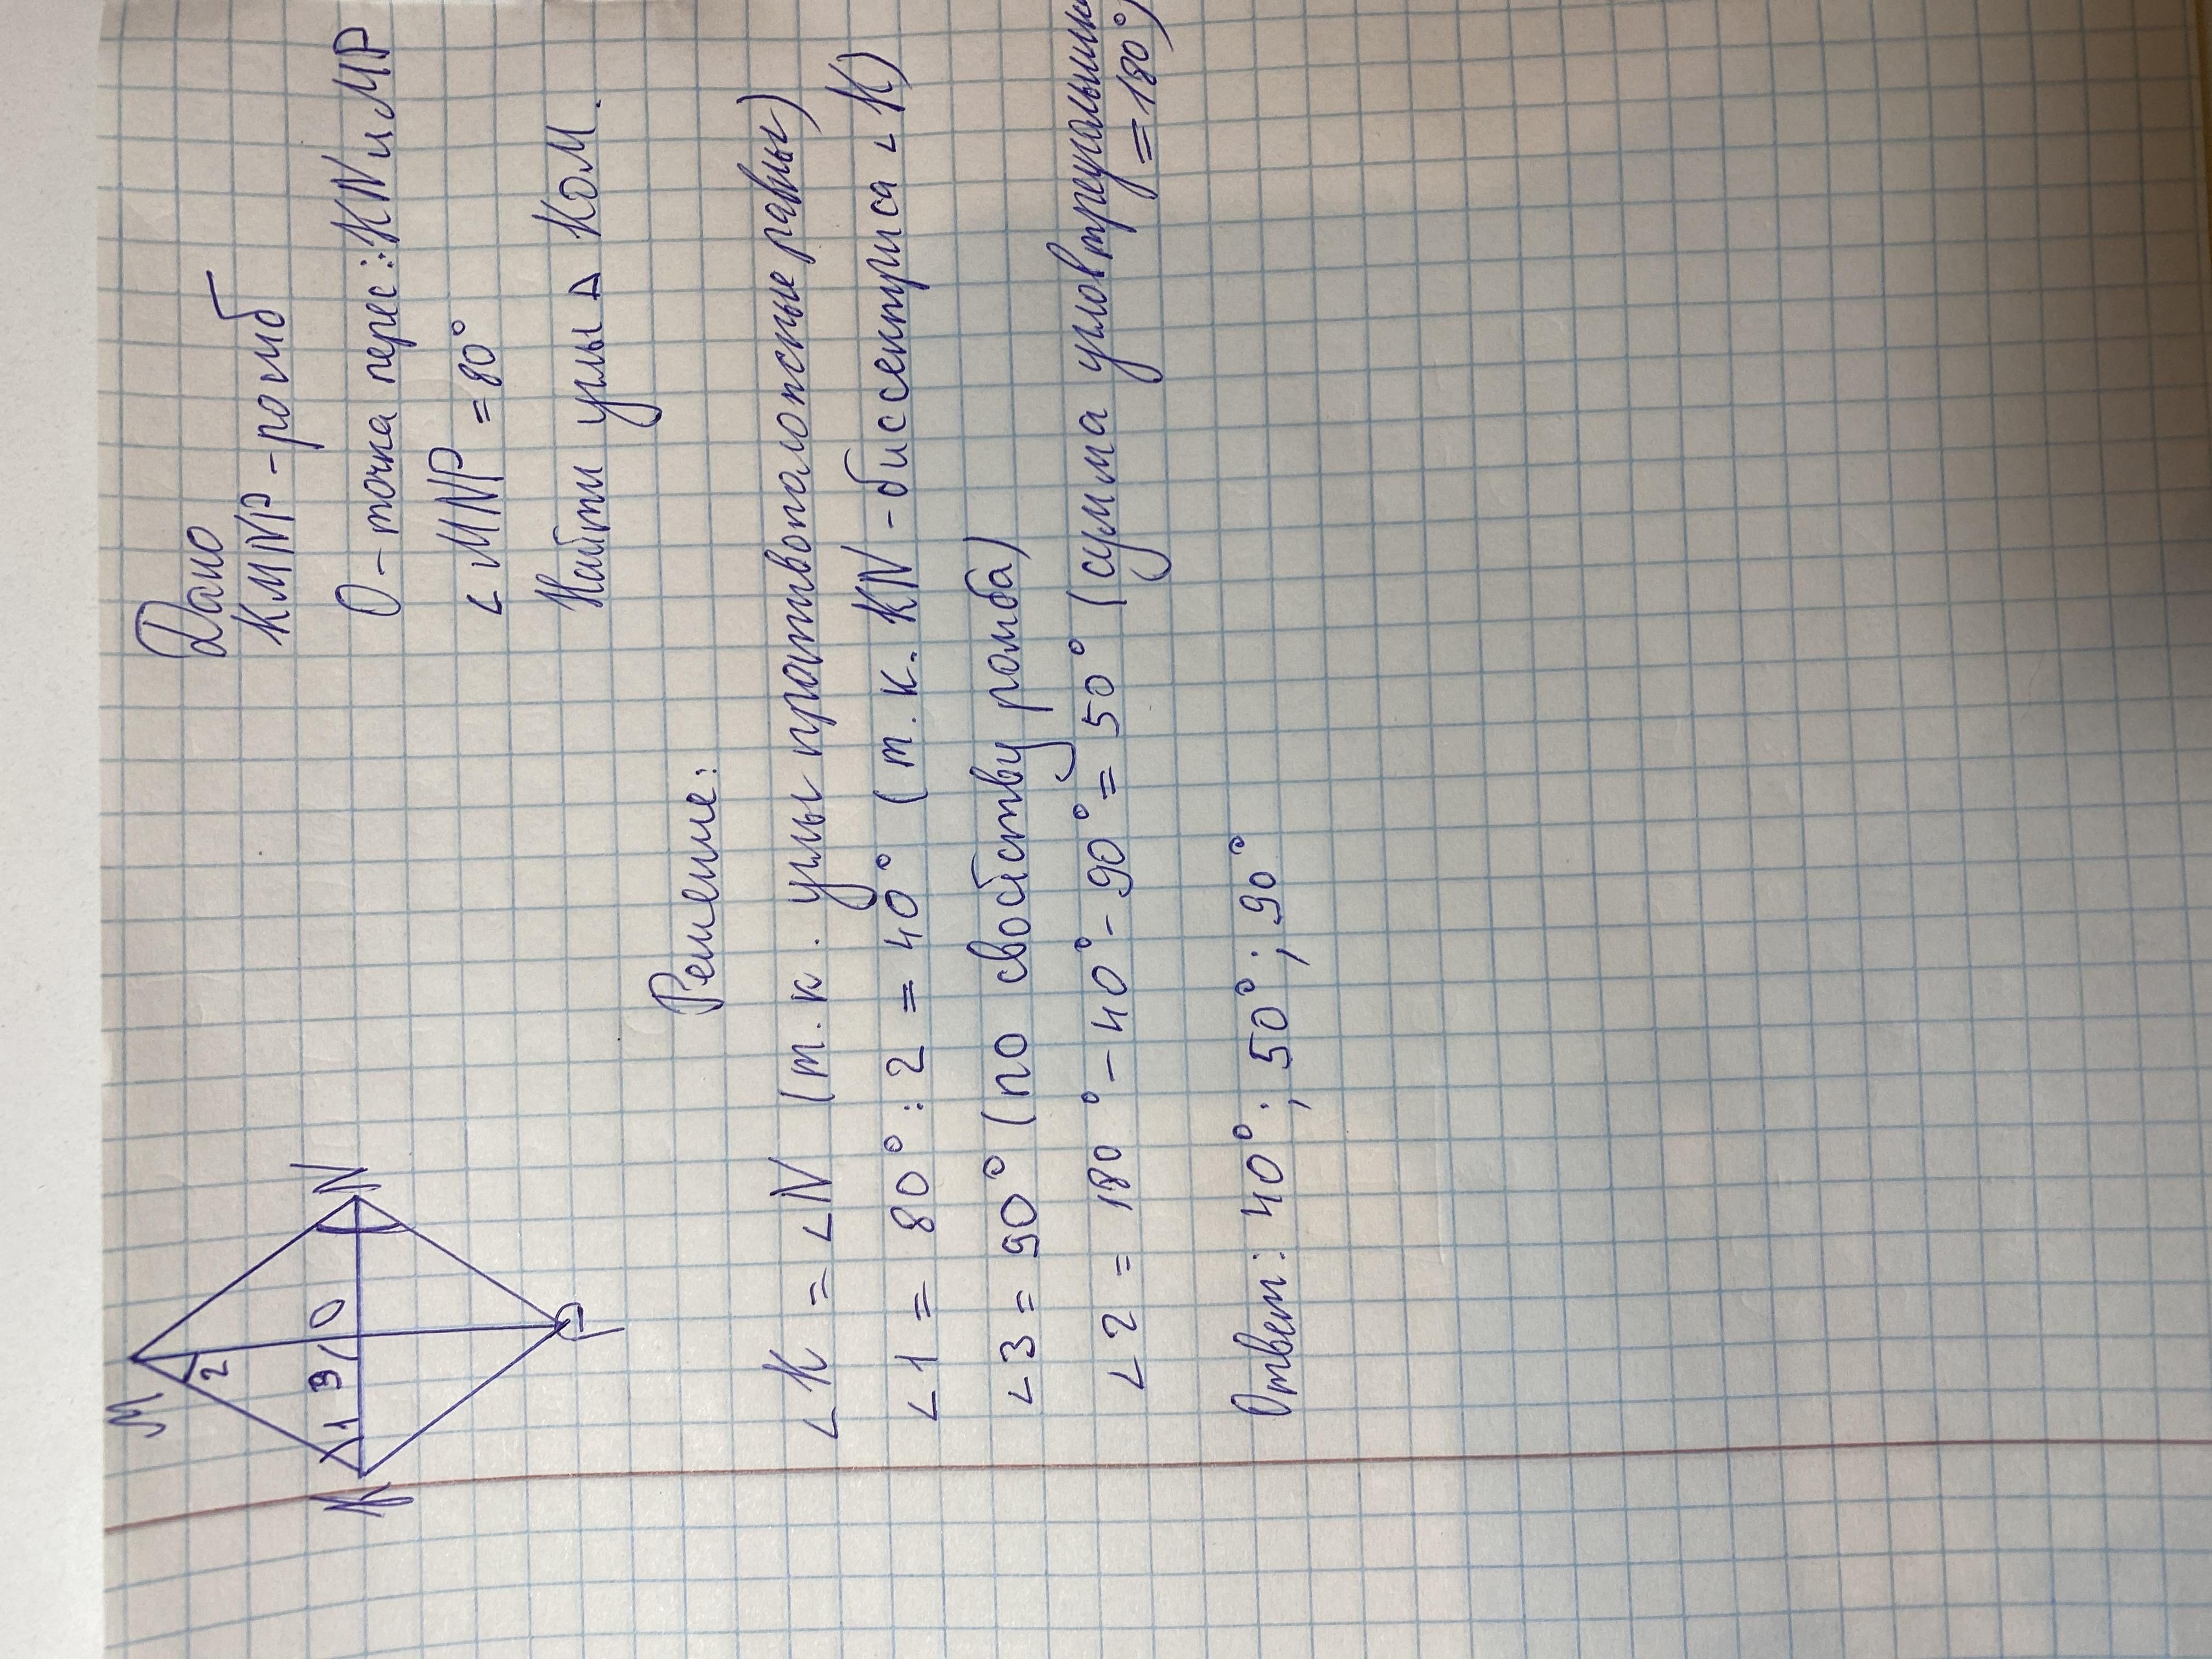 M
K
N
P
O
1
2
3
Дано
KMNP - ромб
O - точка перес: KN и MP
∠MNP = 80°
Найти углы Δ KOM.
Решение:
∠K = ∠N (т.к. углы противоположные равны)
∠1 = 80° : 2 = 40° (т.к. KN - биссектриса ∠K)
∠3 = 90° (по свойству ромба)
∠2 = 180° - 40° - 90° = 50° (сумма углов треугольника
= 180°)
Ответ: 40°; 50°; 90°